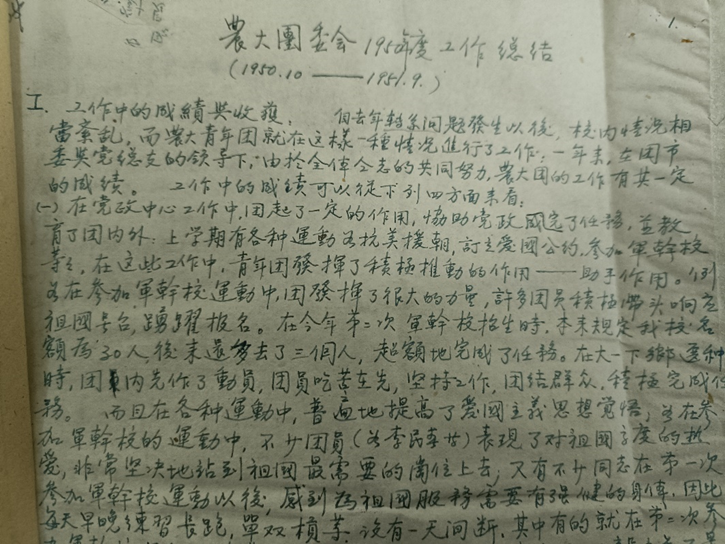 農大團委会1950年度工作总结
(1950.10——1951.9.)
1.
I. 工作中的成績與收獲： 自去年轉系问题發生以後，校内情况相
當紊乱，而農大青年团就在这样一种情况進行了工作：一年来，在团市
委與党總支的领导下，由於全体仝志的共同努力，農大团的工作有其一定
的成績。 工作中的成績可以從下列四方面来看：
(一)在党政中心工作中，团起了一定的作用，協助党政 完了任務，並教
育了团内外：上学期有各种運動 抗美援朝，訂立爱國公约，参加軍幹校
等，在这些工作中，青年团發揮了積極推動的作用——助手作用。例
如在参加軍幹校運動中，团發揮了很大的力量，許多团員積極带头响应
祖國号召，踴躍报名。在今年第二次軍幹校招生時，本来規定我校名
額為30人，後来還多去了三個人，超額地完成了任務。在大一下鄉
時，团内先作了動員，团員吃苦在先，坚持工作，团结群众，積極完成任
務。 而且在各种運動中，普遍地提高了爱國主義思想觉悟；如在参
加軍幹校的運動中，不少团員(如李民 )表現了对祖國高度的热
爱，非常坚决地站到祖國最需要的崗位上去；又有不少同志在第一次
参加軍幹校運動以後，感到為祖國服務需要有强健的身体，因此
每天早晚練習長跑，單双槓等，没有一天间断，其中有的就在第二次参